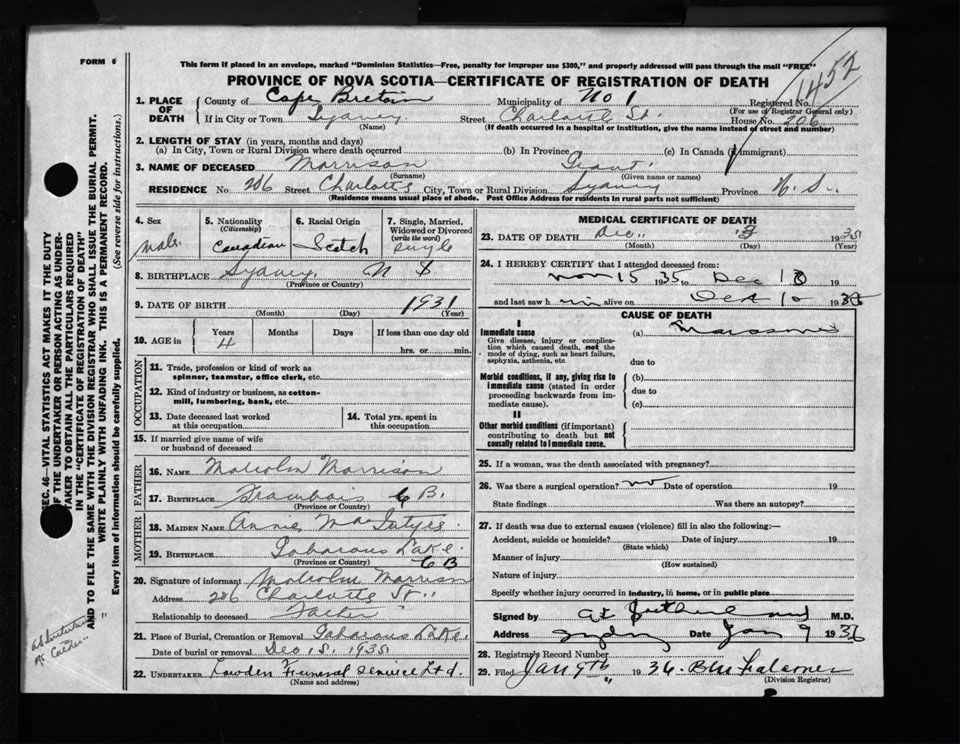 FORM 6
This form if placed in an envelope, marked "Dominion Statistics—Free, penalty for improper use $300," and properly addressed will pass through the mail "FREE"
PROVINCE OF NOVA SCOTIA—CERTIFICATE OF REGISTRATION OF DEATH
1452
1. PLACE OF DEATH
County of Cape Breton Municipality of No 1 Registered No.
(For use of Registrar General only)
If in City or Town Sydney Street Charlotte St. House No. 206
(Name) (If death occurred in a hospital or institution, give the name instead of street and number)
2. LENGTH OF STAY (in years, months and days)
(a) In City, Town or Rural Division where death occurred (b) In Province (c) In Canada (if immigrant)
3. NAME OF DECEASED Morrison Grant
(Surname) (Given name or names)
RESIDENCE No. 206 Street Charlotte City, Town or Rural Division Sydney Province N. S.
(Residence means usual place of abode. Post Office Address for residents in rural parts not sufficient)
4. Sex Male
5. Nationality (Citizenship) Canadian
6. Racial Origin Scotch
7. Single, Married, Widowed or Divorced (write the word) single
8. BIRTHPLACE Sydney N S
(Province or Country)
9. DATE OF BIRTH 1931
(Month) (Day) (Year)
10. AGE in Years 4 Months Days If less than one day old
hrs. or min.
OCCUPATION
11. Trade, profession or kind of work as spinner, teamster, office clerk, etc.
12. Kind of industry or business, as cotton-mill, lumbering, bank, etc.
13. Date deceased last worked at this occupation
14. Total yrs. spent in this occupation
15. If married give name of wife or husband of deceased
FATHER
16. NAME Malcolm Morrison
17. Birthplace Framboise C B.
(Province or Country)
MOTHER
18. MAIDEN NAME Annie
19. BIRTHPLACE Gabarous Lake. C B
(Province or Country)
20. Signature of informant Malcolm Morrison
Address Charlotte St.
Relationship to deceased Father
21. Place of Burial, Cremation or Removal Gabarous Lake.
Date of burial or removal Dec 1935
22. UNDERTAKER Lowden Funeral Service Ltd.
(Name and address)
MEDICAL CERTIFICATE OF DEATH
23. DATE OF DEATH Dec. 1935
(Month) (Day) (Year)
24. I HEREBY CERTIFY that I attended deceased from:
Nov 15 1935 to Dec 19
and last saw h im alive on Dec 10 19
CAUSE OF DEATH
I
Immediate cause
Give disease, injury or complication which caused death, not the mode of dying, such as heart failure, asphyxia, asthenia, etc.
(a)
due to
Morbid conditions, if any, giving rise to immediate cause (stated in order proceeding backwards from immediate cause).
(b)
due to
(c)
II
Other morbid conditions (if important) contributing to death but not causally related to immediate cause.
25. If a woman, was the death associated with pregnancy?
26. Was there a surgical operation? no Date of operation 19
State findings Was there an autopsy?
27. If death was due to external causes (violence) fill in also the following:—
Accident, suicide or homicide? Date of injury 19
(State which)
Manner of injury
(How sustained)
Nature of injury
Specify whether injury occurred in industry, in home, or in public place
Signed by M.D.
Address Sydney Date Jan 9 1936
28. Registrar's Record Number
29. Filed Jan 9th 1936
(Division Registrar)
SEC. 46—VITAL STATISTICS ACT MAKES IT THE DUTY
OF THE UNDERTAKER OR PERSON ACTING AS UNDER-
TAKER TO OBTAIN ALL THE PARTICULARS REQUIRED
IN THE "CERTIFICATE OF REGISTRATION OF DEATH"
AND TO FILE THE SAME WITH THE DIVISION REGISTRAR WHO SHALL ISSUE THE BURIAL PERMIT.
WRITE PLAINLY WITH UNFADING INK. THIS IS A PERMANENT RECORD.
Every item of information should be carefully supplied. (See reverse side for instructions.)